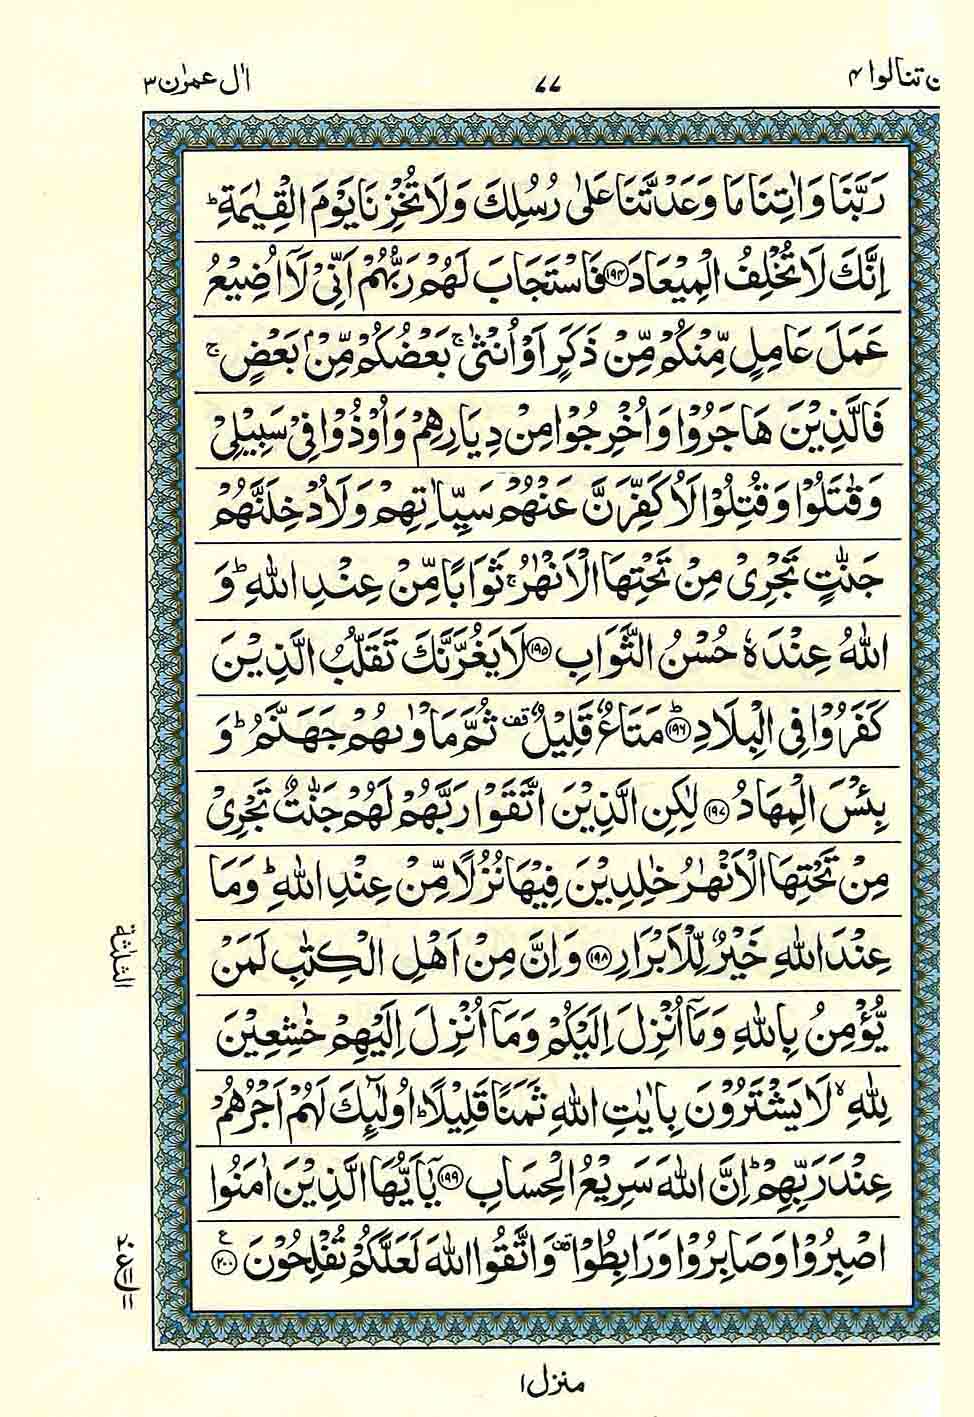 ن تنالوا ۴
۷۷
اٰل عمرٰن ۳
رَبَّنَا وَاٰتِنَا مَا وَعَدْتَّنَا عَلٰى رُسُلِكَ وَلَا تُخْزِنَا يَوْمَ الْقِيٰمَةِ ؕ
اِنَّكَ لَا تُخْلِفُ الْمِيْعَادَ ۝۱۹۴ فَاسْتَجَابَ لَهُمْ رَبُّهُمْ اَنِّىْ لَاۤ اُضِيْعُ
عَمَلَ عَامِلٍ مِّنْكُمْ مِّنْ ذَكَرٍ اَوْ اُنْثٰى ۚ بَعْضُكُمْ مِّنْۢ بَعْضٍ ۚ
فَالَّذِيْنَ هَاجَرُوْا وَاُخْرِجُوْا مِنْ دِيَارِهِمْ وَاُوْذُوْا فِىْ سَبِيْلِىْ
وَقٰتَلُوْا وَقُتِلُوْا لَاُكَفِّرَنَّ عَنْهُمْ سَيِّاٰتِهِمْ وَلَاُدْخِلَنَّهُمْ
جَنّٰتٍ تَجْرِىْ مِنْ تَحْتِهَا الْاَنْهٰرُ ۚ ثَوَابًا مِّنْ عِنْدِ اللّٰهِ ؕ وَ
اللّٰهُ عِنْدَهٗ حُسْنُ الثَّوَابِ ۝۱۹۵ لَا يَغُرَّنَّكَ تَقَلُّبُ الَّذِيْنَ
كَفَرُوْا فِى الْبِلَادِ ؕ۝۱۹۶ مَتَاعٌ قَلِيْلٌ قف ثُمَّ مَاْوٰىهُمْ جَهَنَّمُ ؕ وَ
بِئْسَ الْمِهَادُ ۝۱۹۷ لٰكِنِ الَّذِيْنَ اتَّقَوْا رَبَّهُمْ لَهُمْ جَنّٰتٌ تَجْرِىْ
مِنْ تَحْتِهَا الْاَنْهٰرُ خٰلِدِيْنَ فِيْهَا نُزُلًا مِّنْ عِنْدِ اللّٰهِ ؕ وَمَا
عِنْدَ اللّٰهِ خَيْرٌ لِّلْاَبْرَارِ ۝۱۹۸ وَاِنَّ مِنْ اَهْلِ الْكِتٰبِ لَمَنْ
يُّؤْمِنُ بِاللّٰهِ وَمَاۤ اُنْزِلَ اِلَيْكُمْ وَمَاۤ اُنْزِلَ اِلَيْهِمْ خٰشِعِيْنَ
لِلّٰهِ ۙ لَا يَشْتَرُوْنَ بِاٰيٰتِ اللّٰهِ ثَمَنًا قَلِيْلًا ؕ اُولٰٓئِكَ لَهُمْ اَجْرُهُمْ
عِنْدَ رَبِّهِمْ ؕ اِنَّ اللّٰهَ سَرِيْعُ الْحِسَابِ ۝۱۹۹ يٰۤاَيُّهَا الَّذِيْنَ اٰمَنُوا
اصْبِرُوْا وَصَابِرُوْا وَرَابِطُوْا قف وَاتَّقُوا اللّٰهَ لَعَلَّكُمْ تُفْلِحُوْنَ ۝۲۰۰ ع
الثلثة
منزل ۱